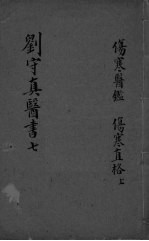 傷寒醫鑑　傷寒直格上
劉守真醫書七